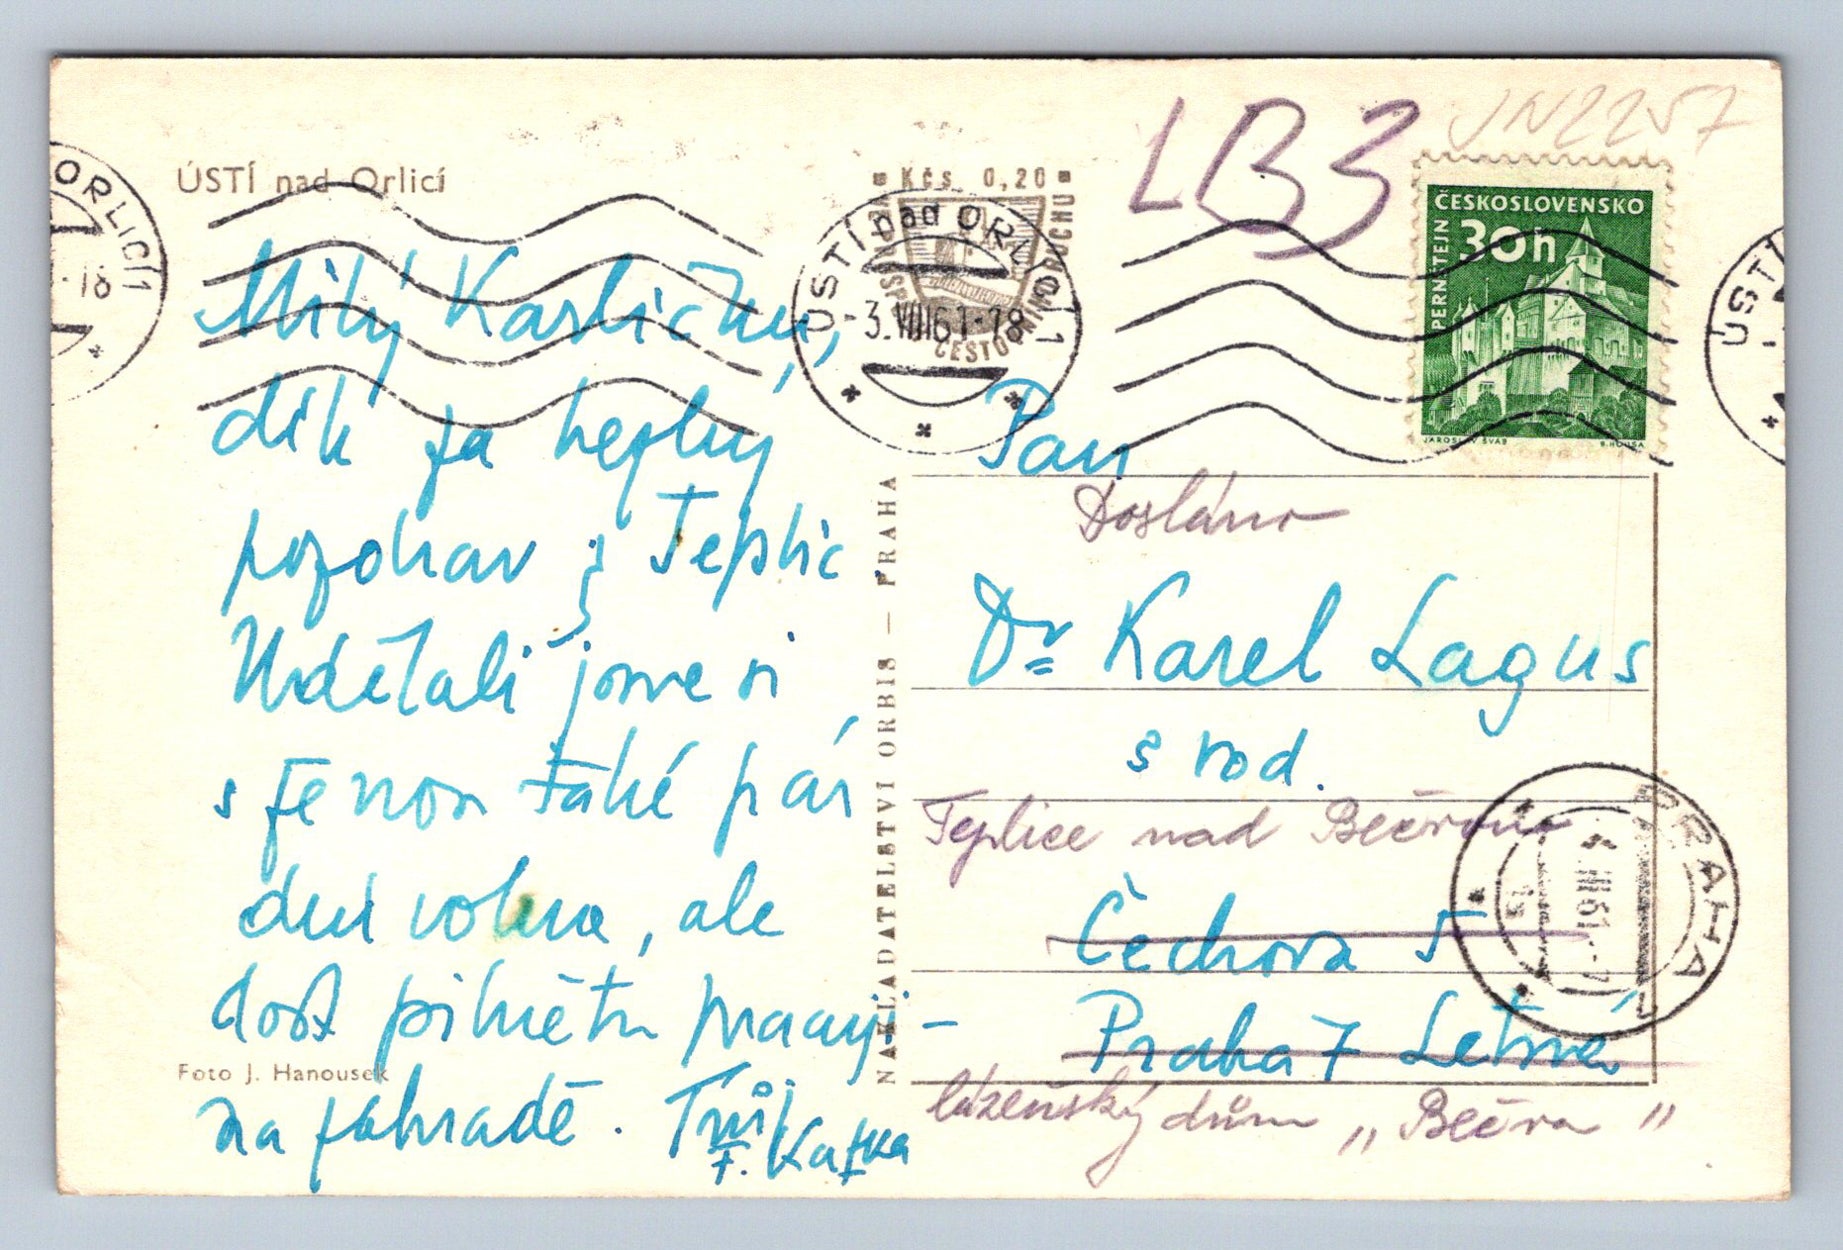 LB3
JN2257
ÚSTÍ nad Orlicí
Kčs 0,20
ČESKOSLOVENSKO
30h
PERNŠTEJN
JAROSLAV ŠVÁB
B. HOUSA
ORLICÍ 1
-18
ÚSTÍ nad ORLICÍ 1
-3.VIII61-18
ÚSTÍ
Milý Karlíčku,
dík za hezký
pozdrav z Teplic.
Udělali jsme si
s ženou také pár
dní volna, ale
dost pilně tu pracuji –
na zahradě. Tvůj
F. Kafka
Foto J. Hanousek
NAKLADATELSTVÍ ORBIS — PRAHA
Pan
Dosláno
Dr Karel Lagus
s rod.
Teplice nad Bečvou
Čechova 5
Praha 7 Letná
lázeňský dům „Bečva"
PRAHA